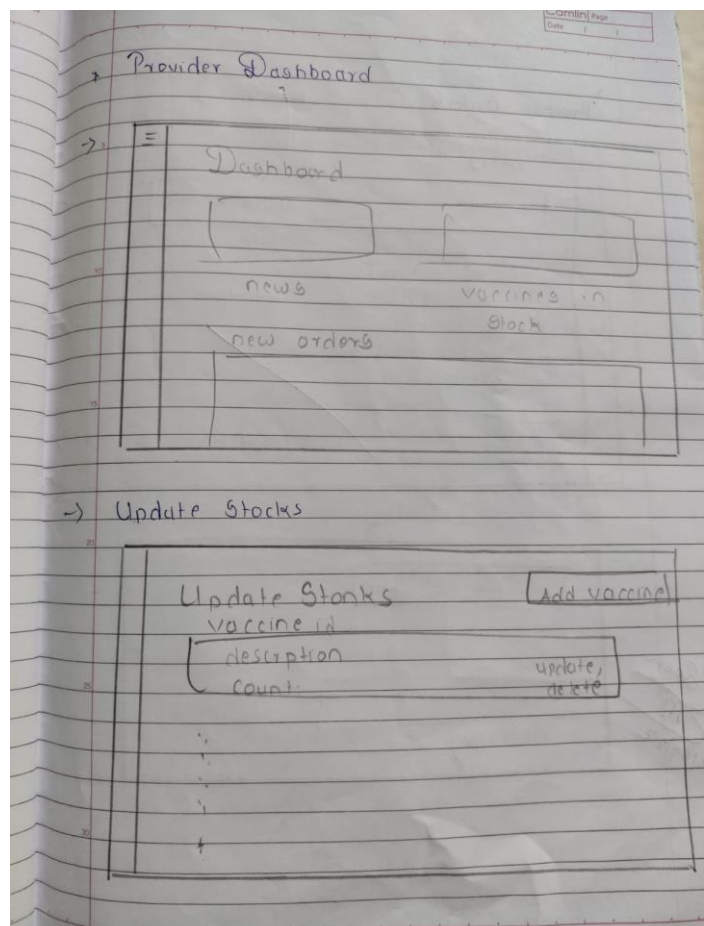 Camlin Page
Date / /
* Provider Dashboard
->
Dashboard
news
vaccines in
stock
new orders
15
-> Update Stocks
20
Update Stonks
Add vaccine
vaccine id
descrption
count:
update,
delete
25
30